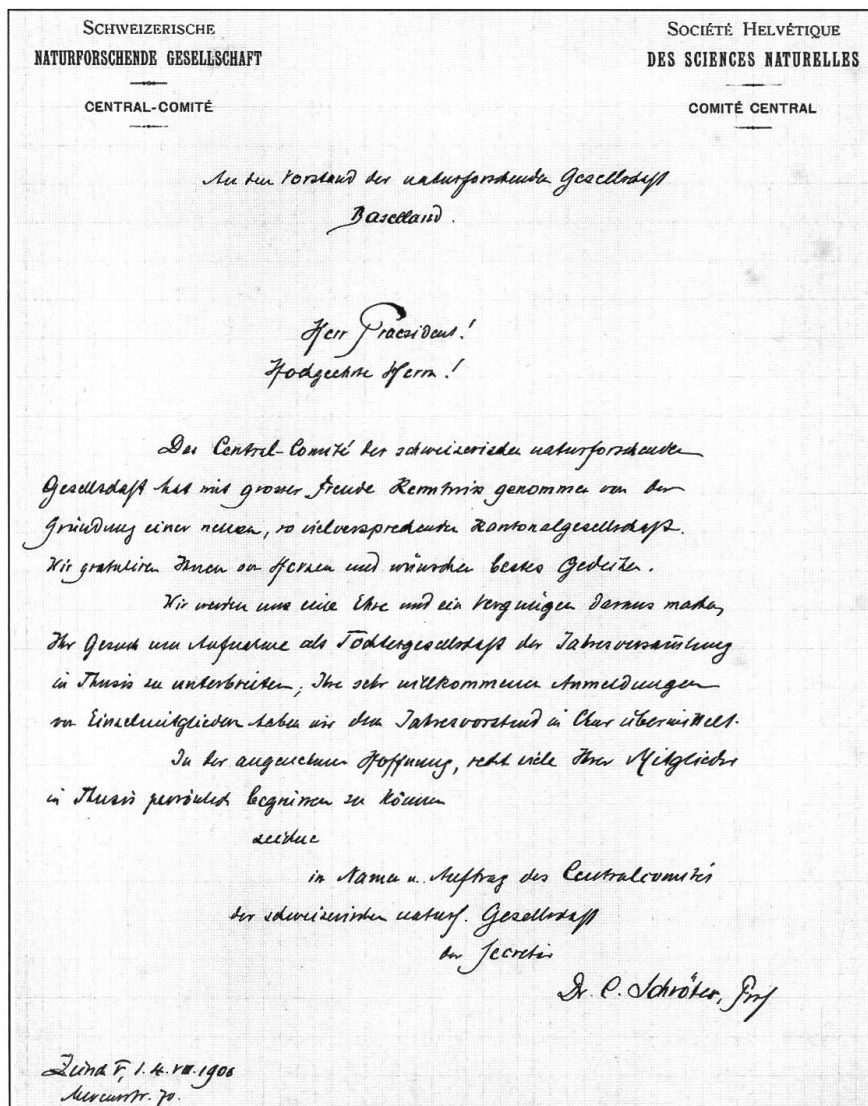 SCHWEIZERISCHE
NATURFORSCHENDE GESELLSCHAFT
CENTRAL-COMITÉ
SOCIÉTÉ HELVÉTIQUE
DES SCIENCES NATURELLES
COMITÉ CENTRAL
An den Vorstand der naturforschenden Gesellschaft
Baselland.
Herr Praesident!
Hochgeehrte Herrn!
Das Central-Comité der schweizerischen naturforschenden
Gesellschaft hat mit grosser Freude Kenntnis genommen von der
Gründung einer neuen, so vielversprechenden Kantonalgesellschaft.
Wir gratuliren Ihnen von Herzen und wünschen bestes Gedeihen.
Wir werden uns eine Ehre und ein Vergnügen daraus machen,
Ihr Gesuch um Aufnahme als Tochtergesellschaft der Jahresversammlung
in Thusis zu unterbreiten; Ihre sehr willkommenen Anmeldungen
von Einzelmitgliedern haben wir dem Jahresvorstand in Chur übermittelt.
In der angenehmen Hoffnung, recht viele Ihrer Mitglieder
in Thusis persönlich begrüssen zu können
zeichne
im Namen u. Auftrag des Centralcomités
der schweizerischen naturf. Gesellschaft
der Secretär
Dr. C. Schröter, Prof
Zürich V, 4. VII. 1900
70.